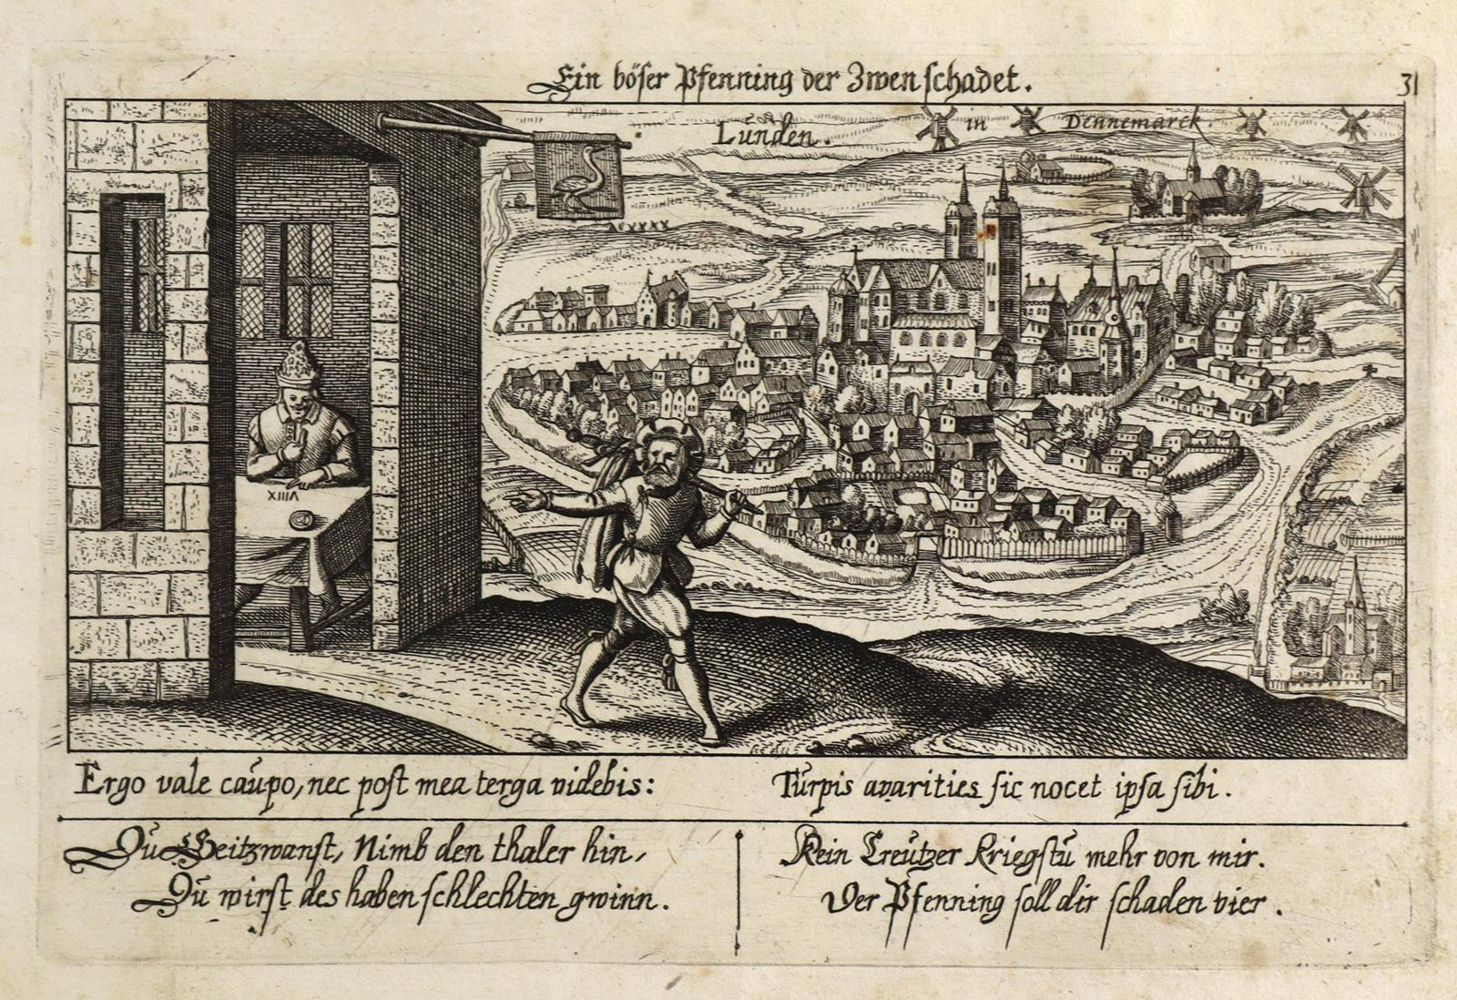 Ein böser Pfenning der Zwen schadet.
31
Lunden. in Dennemarck.
XIIIV
Ergo vale caupo, nec post mea terga videbis:
Turpis avarities sic nocet ipsa sibi.
Du Geitzwanst, Nimb den thaler hin,
Du wirst des haben schlechten gwinn.
Kein Creutzer Kriegstu mehr von mir.
Der Pfenning soll dir schaden vier.